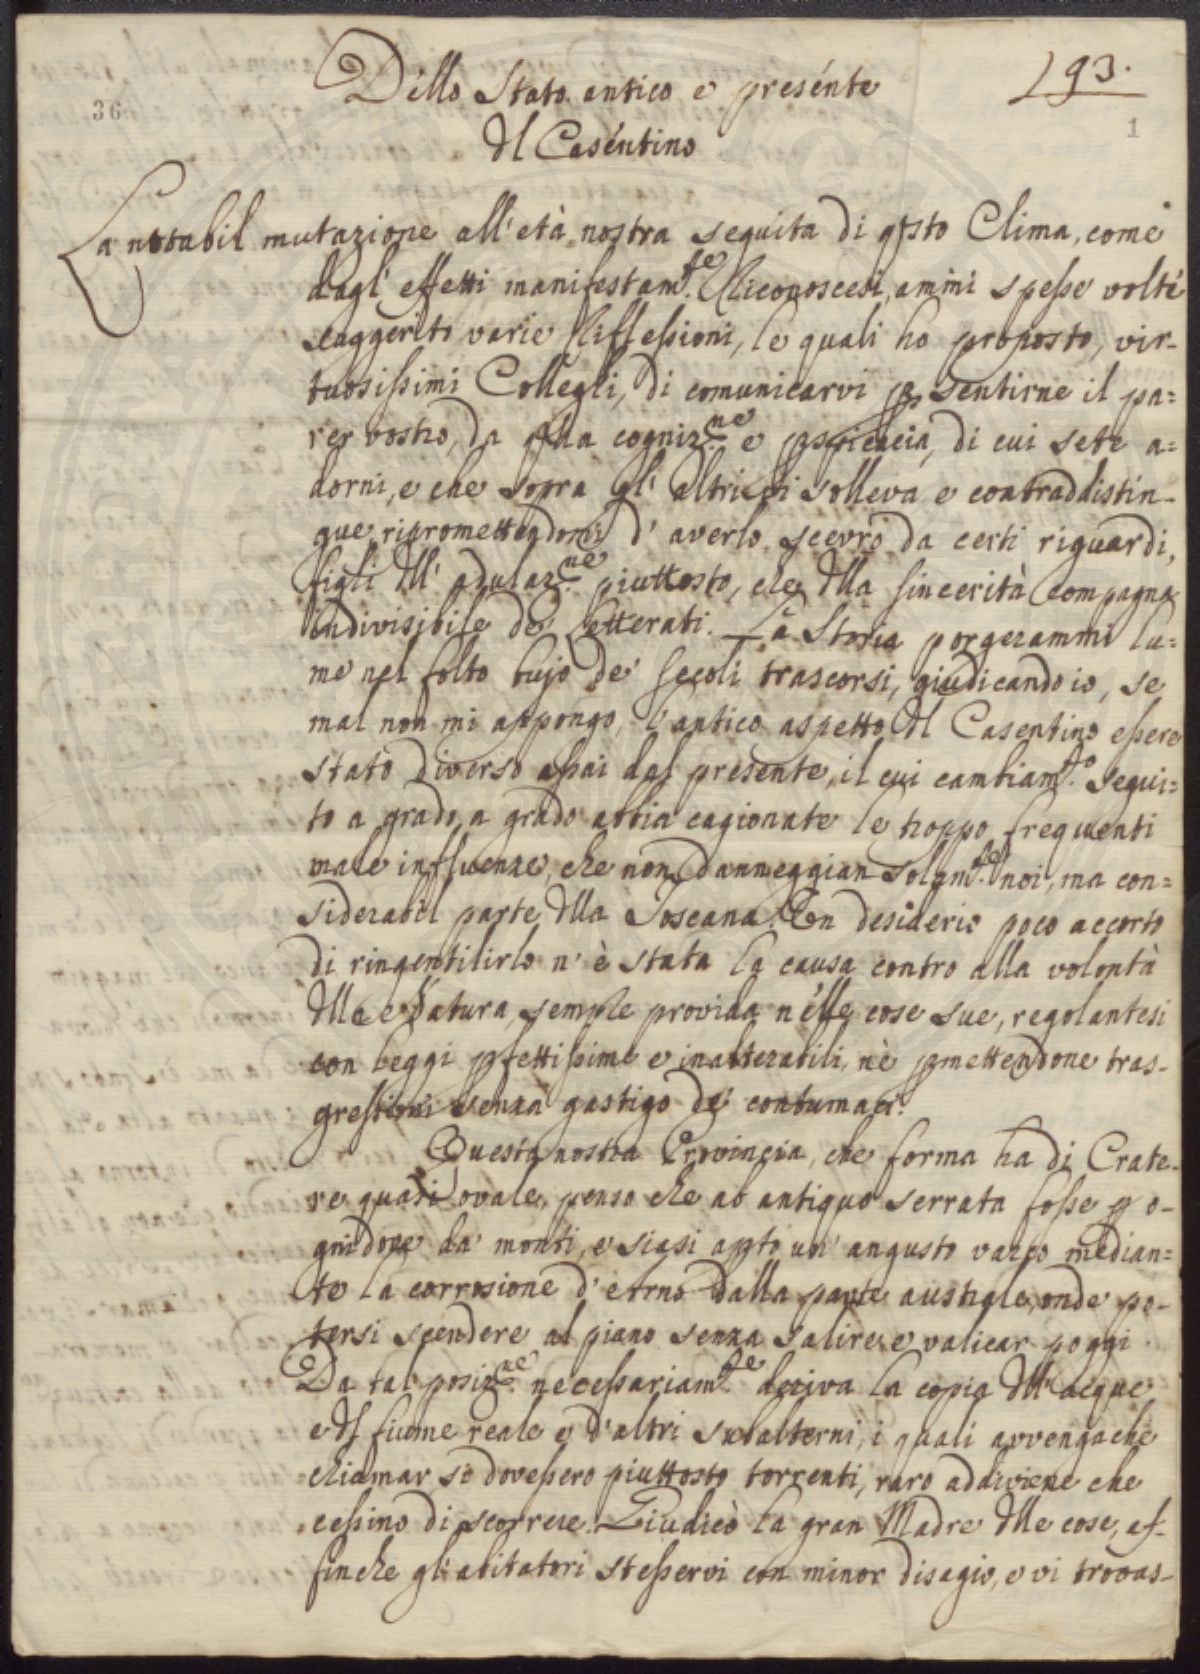 193.
36
1
Dello Stato antico e presente
del Casentino
La notabil mutazione all'età nostra seguita di qsto Clima, come
dagl' effetti manifestam.te riconoscesi, ammi spesse volte
suggerito varie riflessioni, le quali ho proposto, vir-
tuosissimi Collegli, di comunicarvi p sentirne il pa=
rer vostro, da qlla cogniz.ne e pspicacia, di cui sete a=
dorni, e che sopra gl' altri vi solleva e contraddistin-
gue, ripromettendomi d' averlo scevro da certi riguardi,
figli dll' adulaz.ne piuttosto, che dlla sincerità compagna
indivisibile de' Letterati. La Storia porgerammi lu=
me nel folto bujo de' secoli trascorsi, giudicando io, se
mal non mi appongo, l'antico aspetto dl Casentino essere
stato diverso assai dal presente, il cui cambiam.to segui=
to a grado, a grado abbia cagionate le troppo frequenti
male influenze, che non danneggian solam.te noi, ma con=
siderabil parte dlla Toscana. Un desiderio poco accorto
di ringentilirlo n' è stata la causa contro alla volontà
dlla Natura, sempre provida nelle cose sue, regolantesi
con leggi pfettissime e inalterabili, nè pmettendone tras-
gressioni senza gastigo de' contumaci.
Questa nostra Provincia, che forma ha di Crate-
re quasi ovale, penso che ab antiquo serrata fosse p o-
gnidove da' monti, e siasi apto un' angusto varco median=
te la corrosione d' Arno dalla parte australe, onde po-
tersi scendere al piano senza salire e valicar poggi.
Da tal posiz.ne necessariam.te deriva la copia dll' acque
e dl fiume reale e d'altri subalterni, i quali avvengachè
chiamar si dovessero piuttosto torrenti, raro addiviene che
cessino di scorrere. Giudicò la gran Madre dlle cose, af-
finche gli abitatori stesservi con minor disagio, e vi trovas-